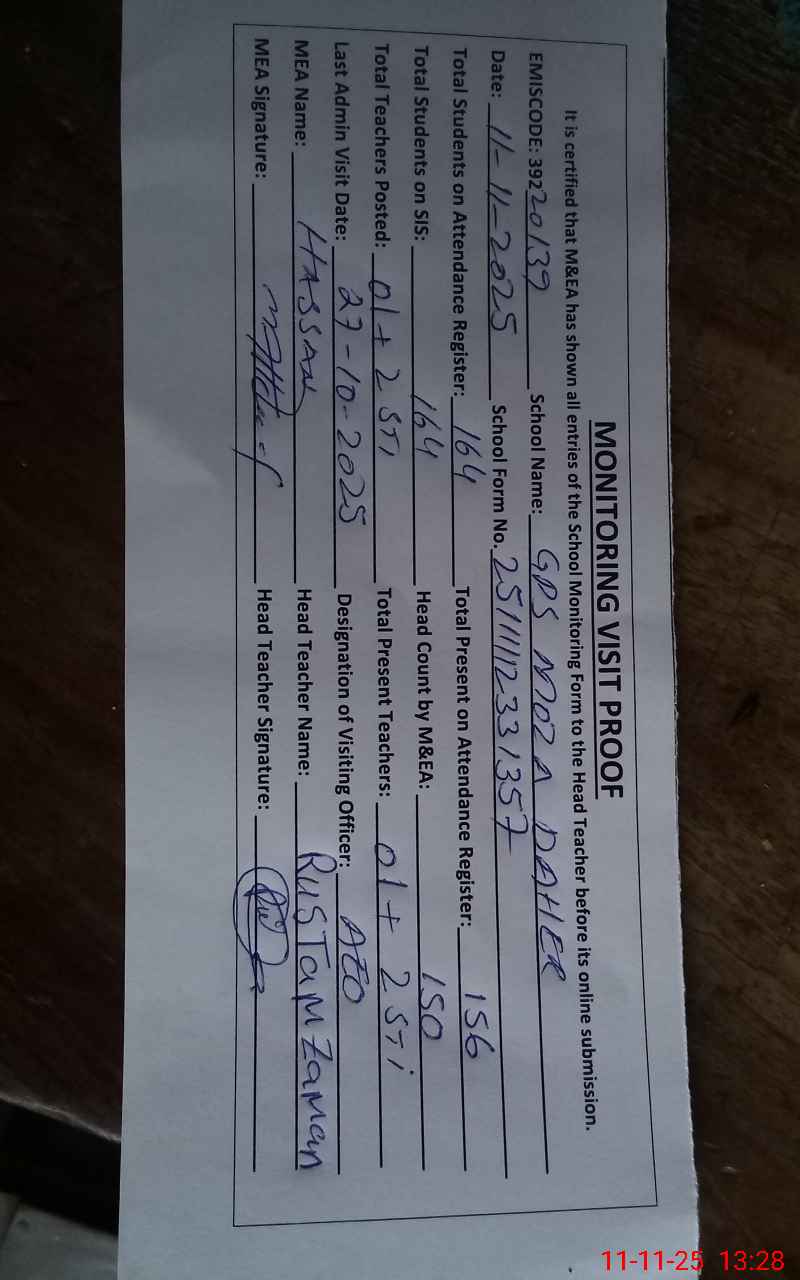 MONITORING VISIT PROOF
It is certified that M&EA has shown all entries of the School Monitoring Form to the Head Teacher before its online submission.
EMISCODE: 39220139 School Name: GPS MOZA DAHER
Date: 11-11-2025 School Form No. 2511111233 1357
Total Students on Attendance Register: 164 Total Present on Attendance Register: 156
Total Students on SIS: 164 Head Count by M&EA: 150
Total Teachers Posted: 01 + 2 STI Total Present Teachers: 01 + 2 STi
Last Admin Visit Date: 27-10-2025 Designation of Visiting Officer: AEO
MEA Name: HASSAN Head Teacher Name: RuSTaM Zaman
MEA Signature: Head Teacher Signature:
11-11-25 13:28